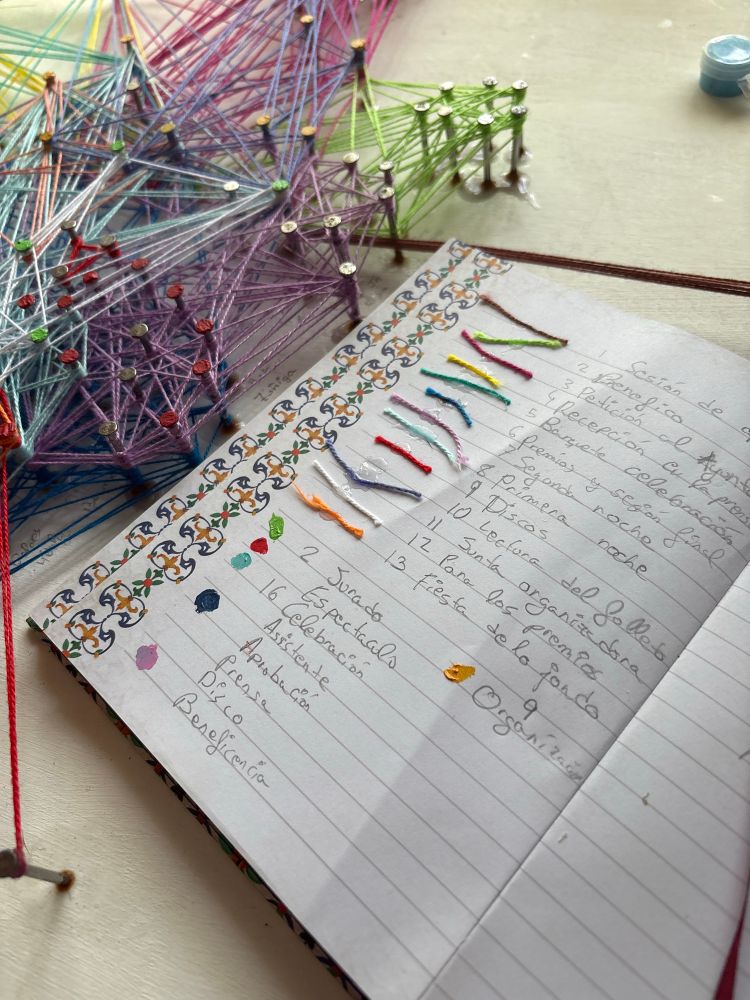 1 Sesión de
2 Benefico
3 Petición al Ayunt
4 Recepcion en la pren
5 Banquete celebración
6 Premios y sesión final
7 Segunda noche
8 Primera noche
9 Discos
10 Lectura del folleto
11 Junta organizadora
12 Para los premios
13 Fiesta de lo jondo
2 Jurado
Espectaculo
16 Celebración
Asistente
Aprobación
Prensa
Disco
Beneficencia
9
Organización
Zuñiga